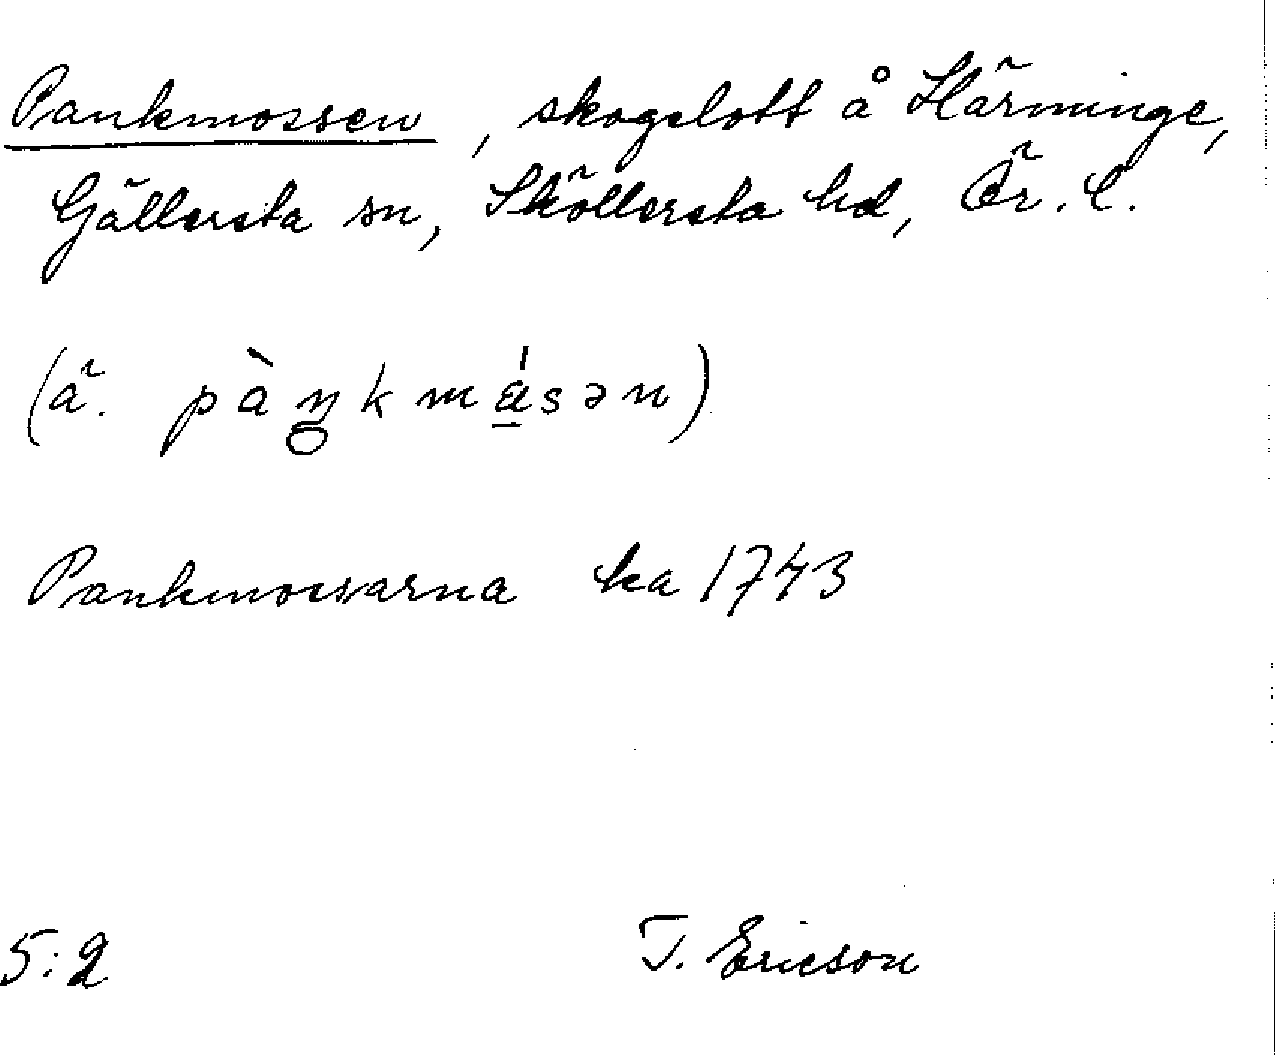 Pankmossen, skogslott å Härminge,
Gällersta sn, Sköllersta hd, Ör. l.
(ä. pàŋkmåsən)
Pankmossarna ka 1743
5:2 T. Ericson